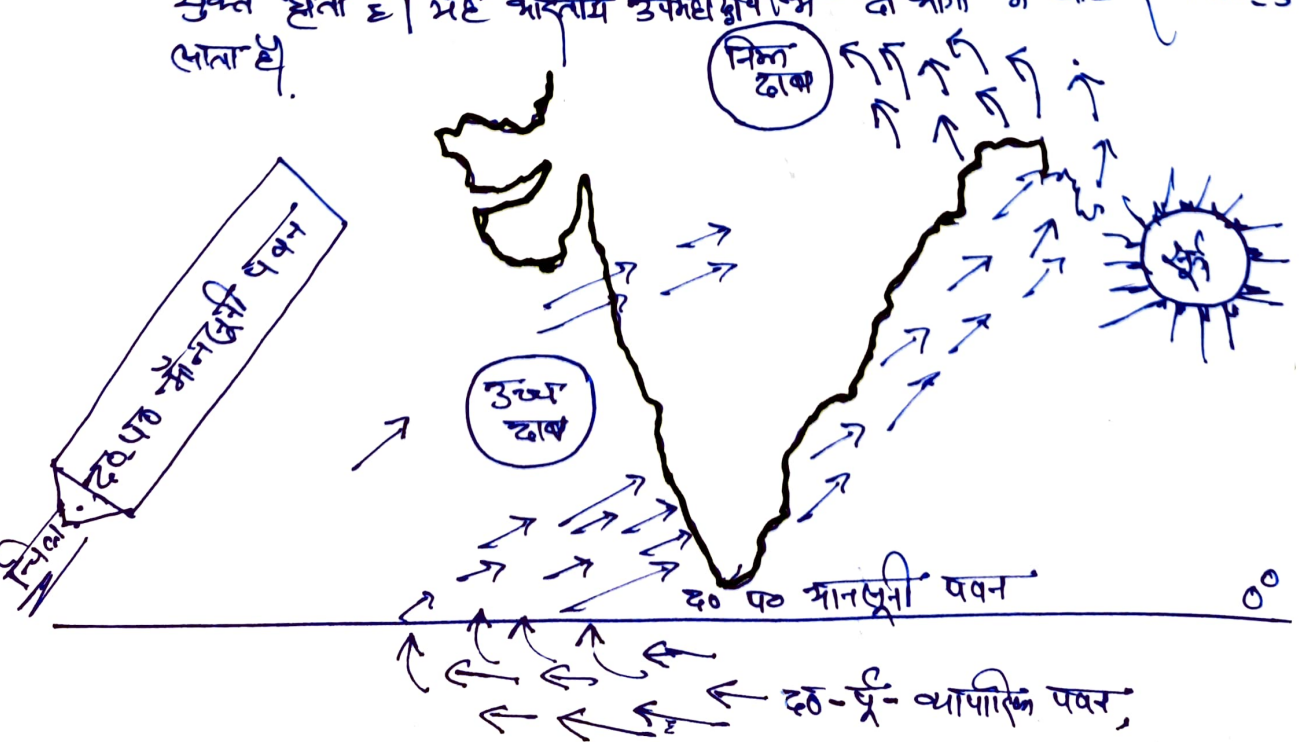 युक्त होता है। यह भारतीय उपमहाद्वीप में दो भागों में
आता है।
निम्न
दाब
सूर्य
द० प० मॉनसूनी पवन
उच्च
दाब
द० प० मानसूनी पवन
0°
द०-पू०- व्यापारिक पवन,